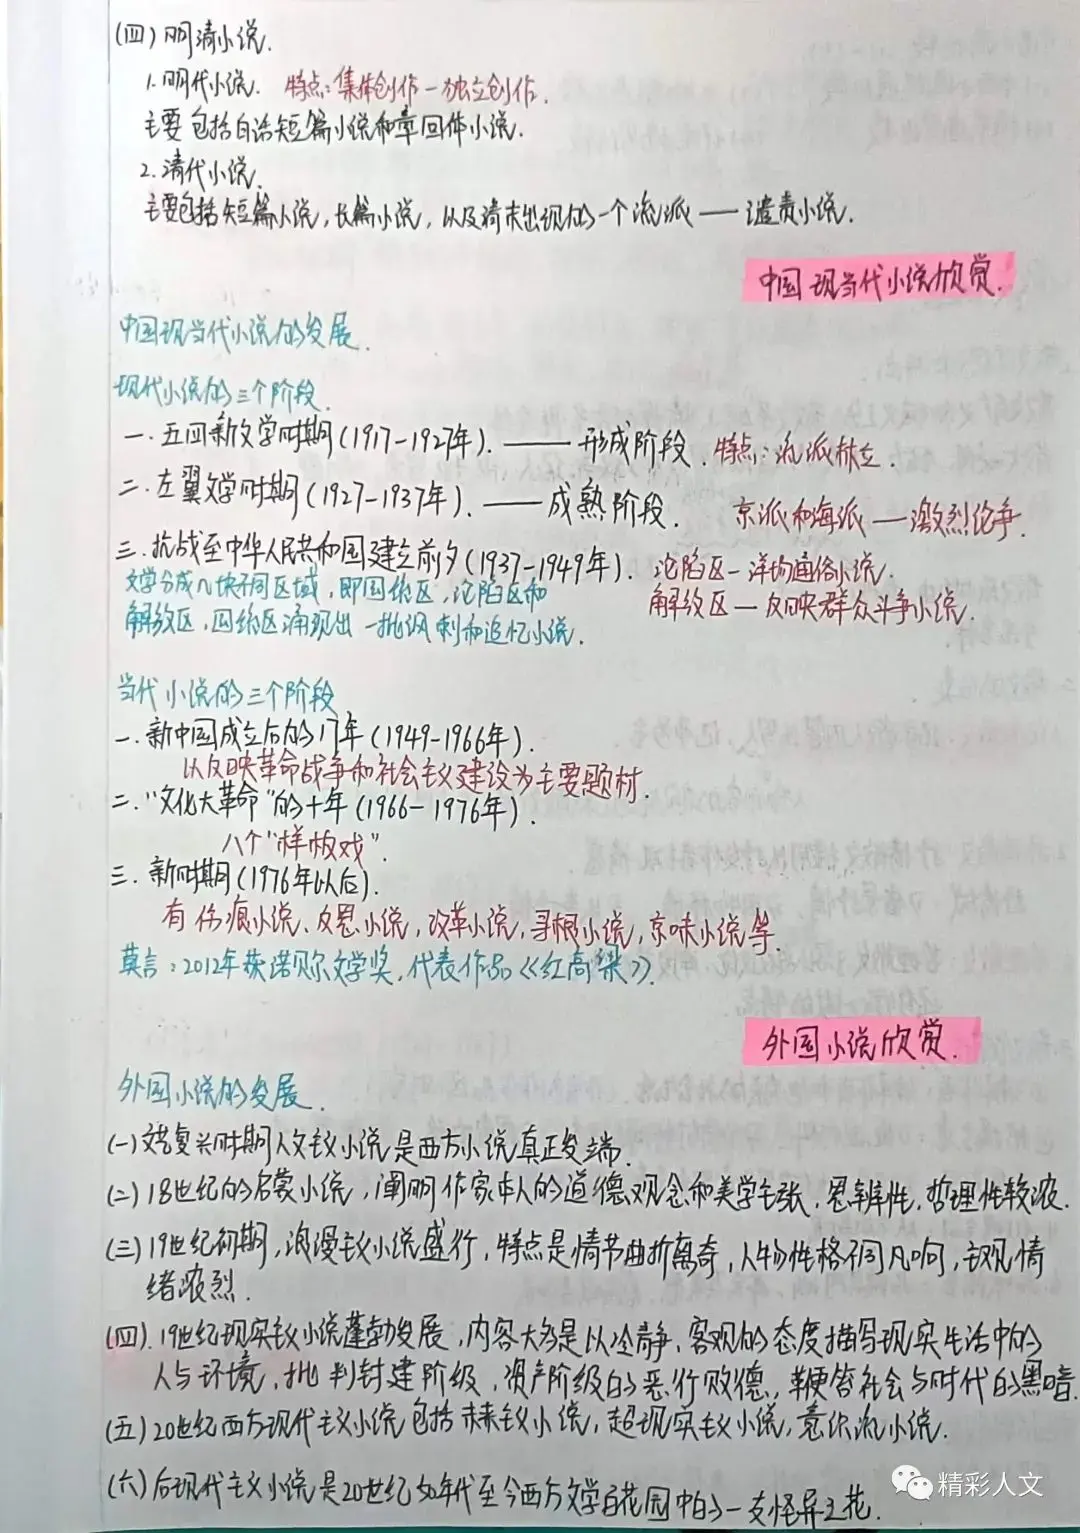 (四)明清小说.
1.明代小说. 特点:集体创作—独立创作.
主要包括白话短篇小说和章回体小说.
2.清代小说.
主要包括短篇小说,长篇小说,以及清末出现的一个流派——谴责小说.
中国现当代小说欣赏.
中国现当代小说的发展.
现代小说的三个阶段.
一.五四新文学时期(1917-1927年).——形成阶段.特点:流派林立.
二.左翼文学时期(1927-1937年).——成熟阶段. 京派和海派—激烈论争.
三.抗战至中华人民共和国建立前夕(1937-1949年). 沦陷区—洋场通俗小说.
文学分成几块不同区域,即国统区,沦陷区和 解放区—反映群众斗争小说.
解放区,国统区涌现出一批讽刺和追忆小说.
当代小说的三个阶段
一.新中国成立后的17年(1949-1966年).
以反映革命战争和社会主义建设为主要题材.
二."文化大革命"的十年(1966-1976年).
八个"样板戏".
三.新时期(1976年以后).
有伤痕小说、反思小说,改革小说,寻根小说,京味小说等.
莫言:2012年获诺贝尔文学奖,代表作品《红高粱》.
外国小说欣赏.
外国小说的发展.
(一)文艺复兴时期人文主义小说是西方小说真正发端.
(二)18世纪的启蒙小说,阐明作家本人的道德观念和美学主张.思辨性,哲理性较浓.
(三)19世纪初期,浪漫主义小说盛行,特点是情节曲折离奇,人物性格不同凡响,主观情
绪浓烈.
(四).19世纪现实主义小说蓬勃发展,内容大多是以冷静,客观的态度描写现实生活中的
人与环境,批判封建阶级,资产阶级的恶行败德,鞭笞社会与时代的黑暗.
(五)20世纪西方现代主义小说包括未来主义小说,超现实主义小说,意识流小说.
(六)后现代主义小说是20世纪50年代至今西方文学百花园中的一支怪异之花.
精彩人文